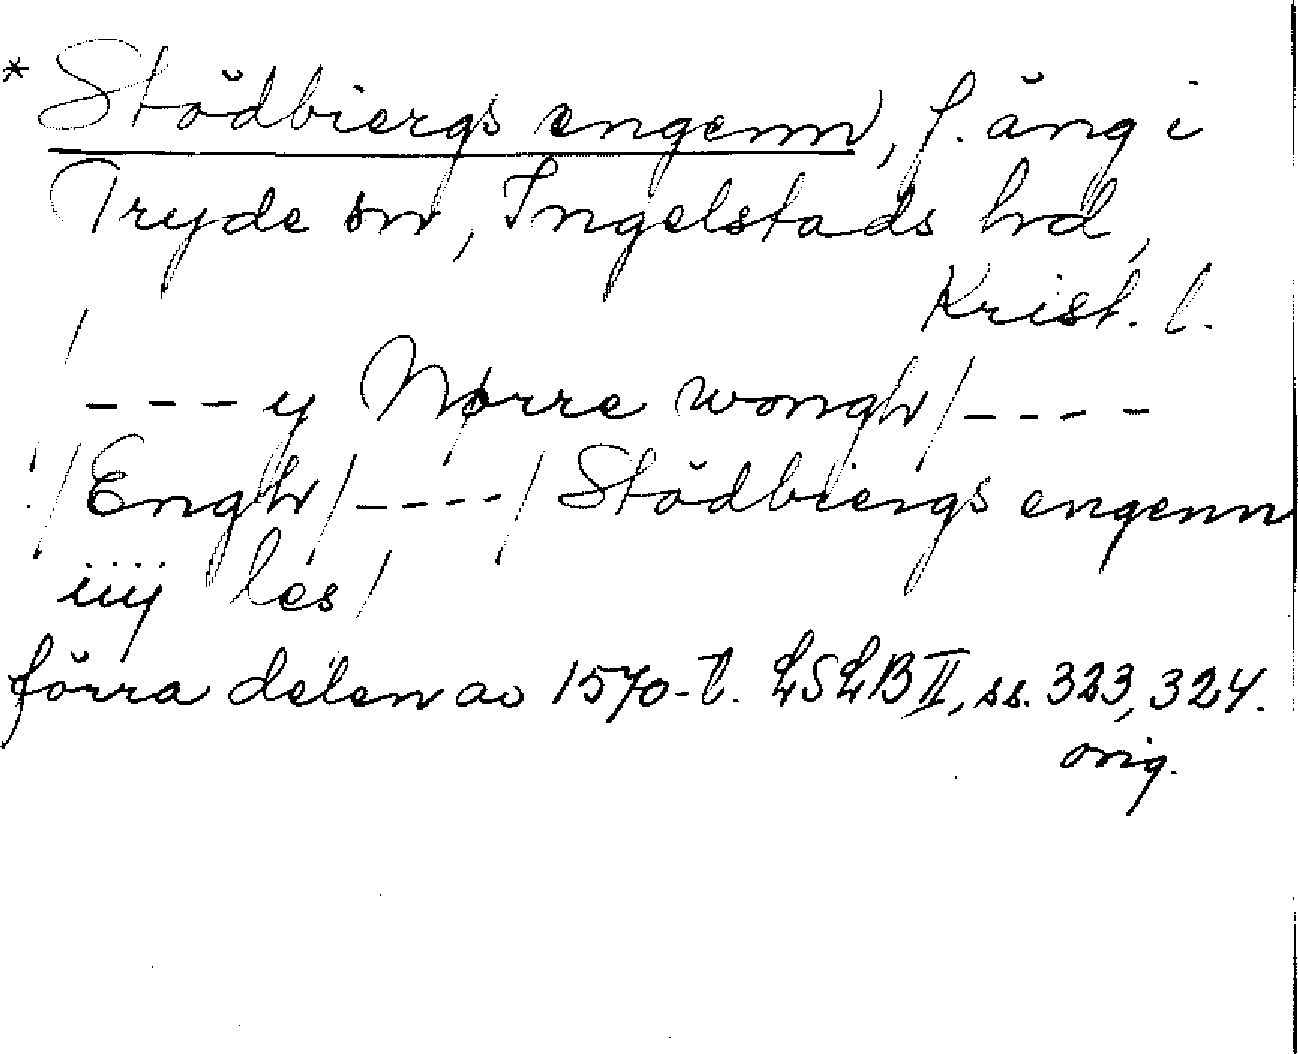 * Stödbiergs engenn, f. äng i
Tryde sn, Ingelstads hd,
Krist. l.
/
---y Nørre wongh/----
:/Engh/----/Stödbiergs engenn
iiij les/
förra delen av 1570-t. LSLB II, ss. 323, 324.
orig.